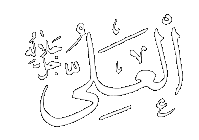 العلي
جل جلاله